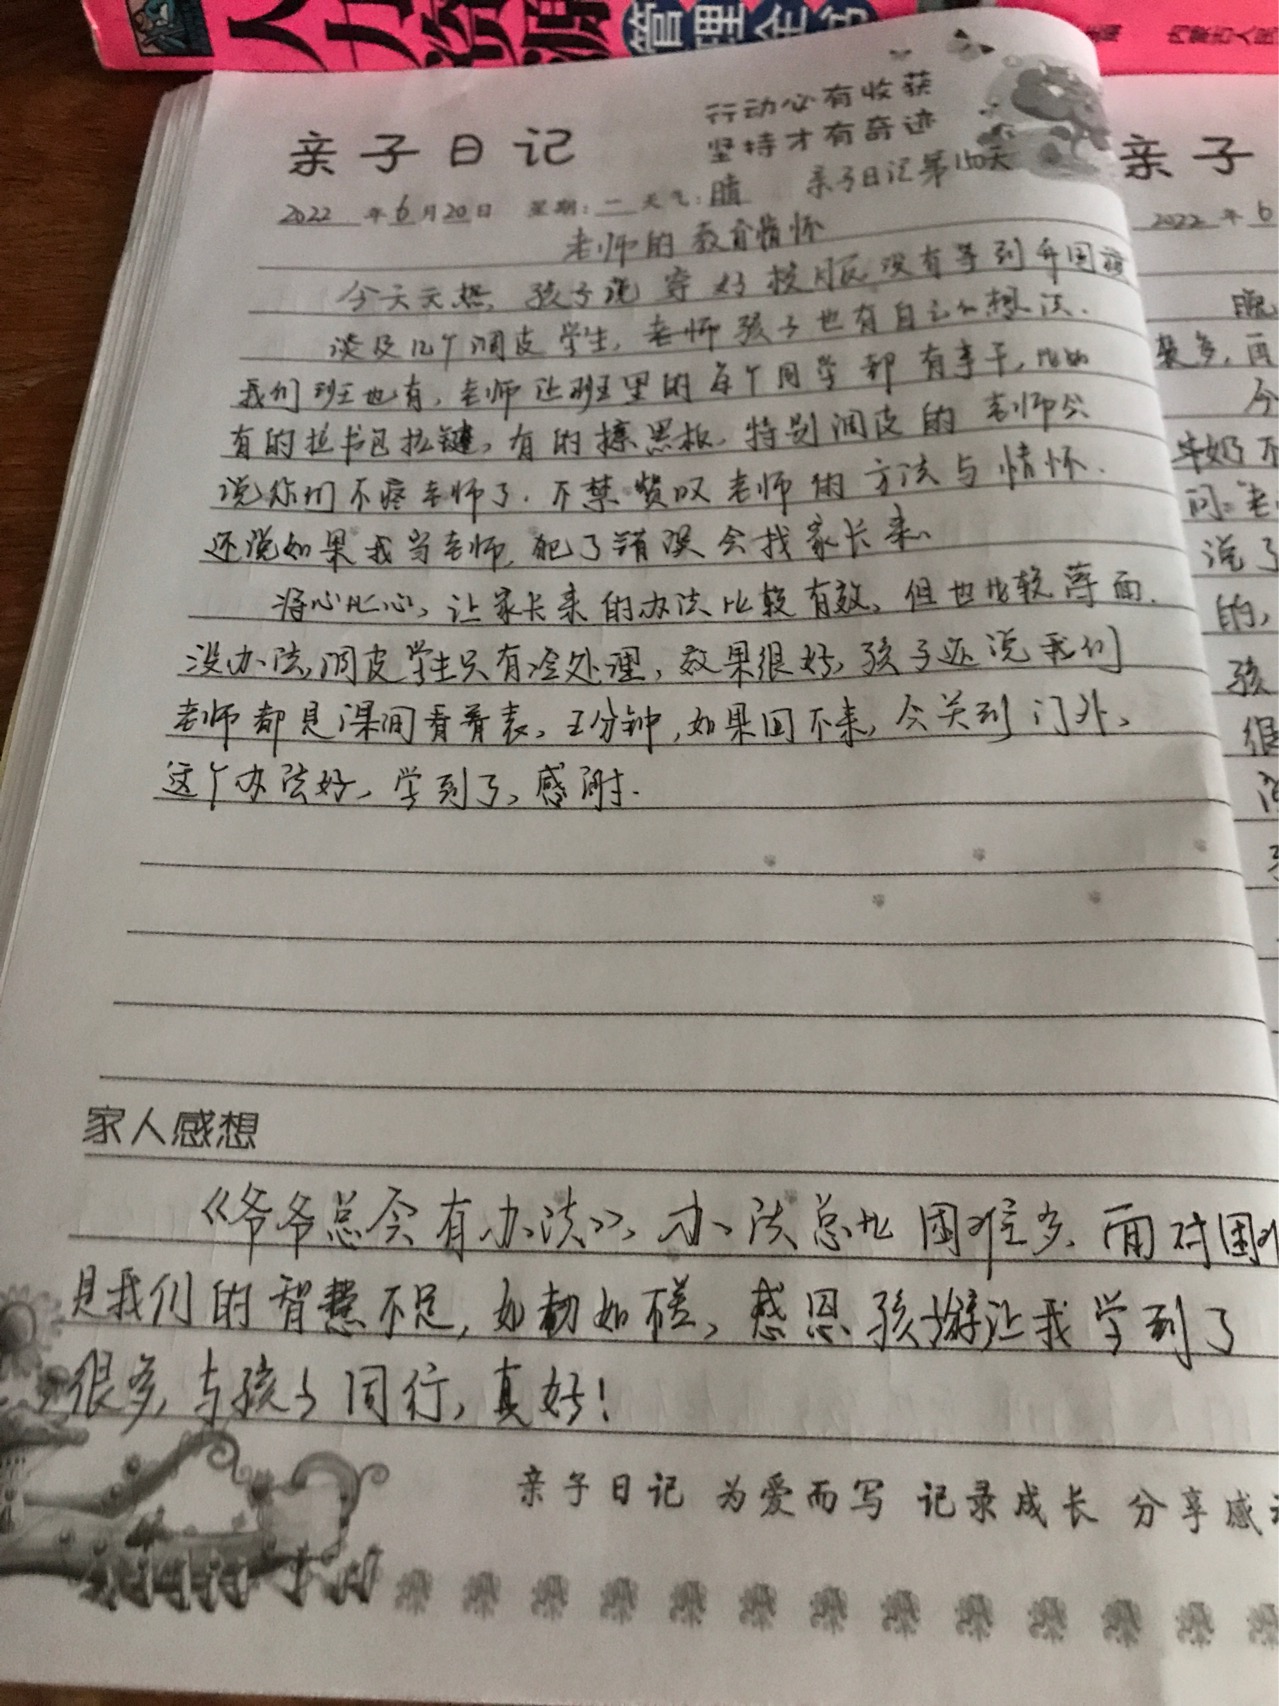 人力资源管理全书
内蒙古人民
亲子日记
行动必有收获
坚持才有奇迹
亲子日记第150天
2022年6月20日 星期:二 天气:晴
老师的教育情怀
今天天热,孩子说穿好校服没有等到升国旗
谈及几个调皮学生,老师孩子也有自己的想法.
我们班也有,老师让班里的每个同学都有事干,比如
有的拉书包拉键,有的擦黑板.特别调皮的老师会
说你们不疼老师了.不禁赞叹老师的方法与情怀.
还说如果我当老师,犯了错误会找家长来。
将心比心,让家长来的办法比较有效,但也比较薄面.
没办法,调皮学生只有冷处理,效果很好,孩子还说我们
老师都是课间看着表,五分钟,如果回不来,会关到门外,
这个办法好,学到了,感谢.
家人感想
《爷爷总会有办法》,办法总比困难多,面对困难
是我们的智慧不足,如切如磋,感恩孩子让我学到了
很多,与孩子同行,真好!
亲子日记 为爱而写 记录成长 分享感
亲子
2022年6
晚
今
牛奶不
说了
的,
孩
很